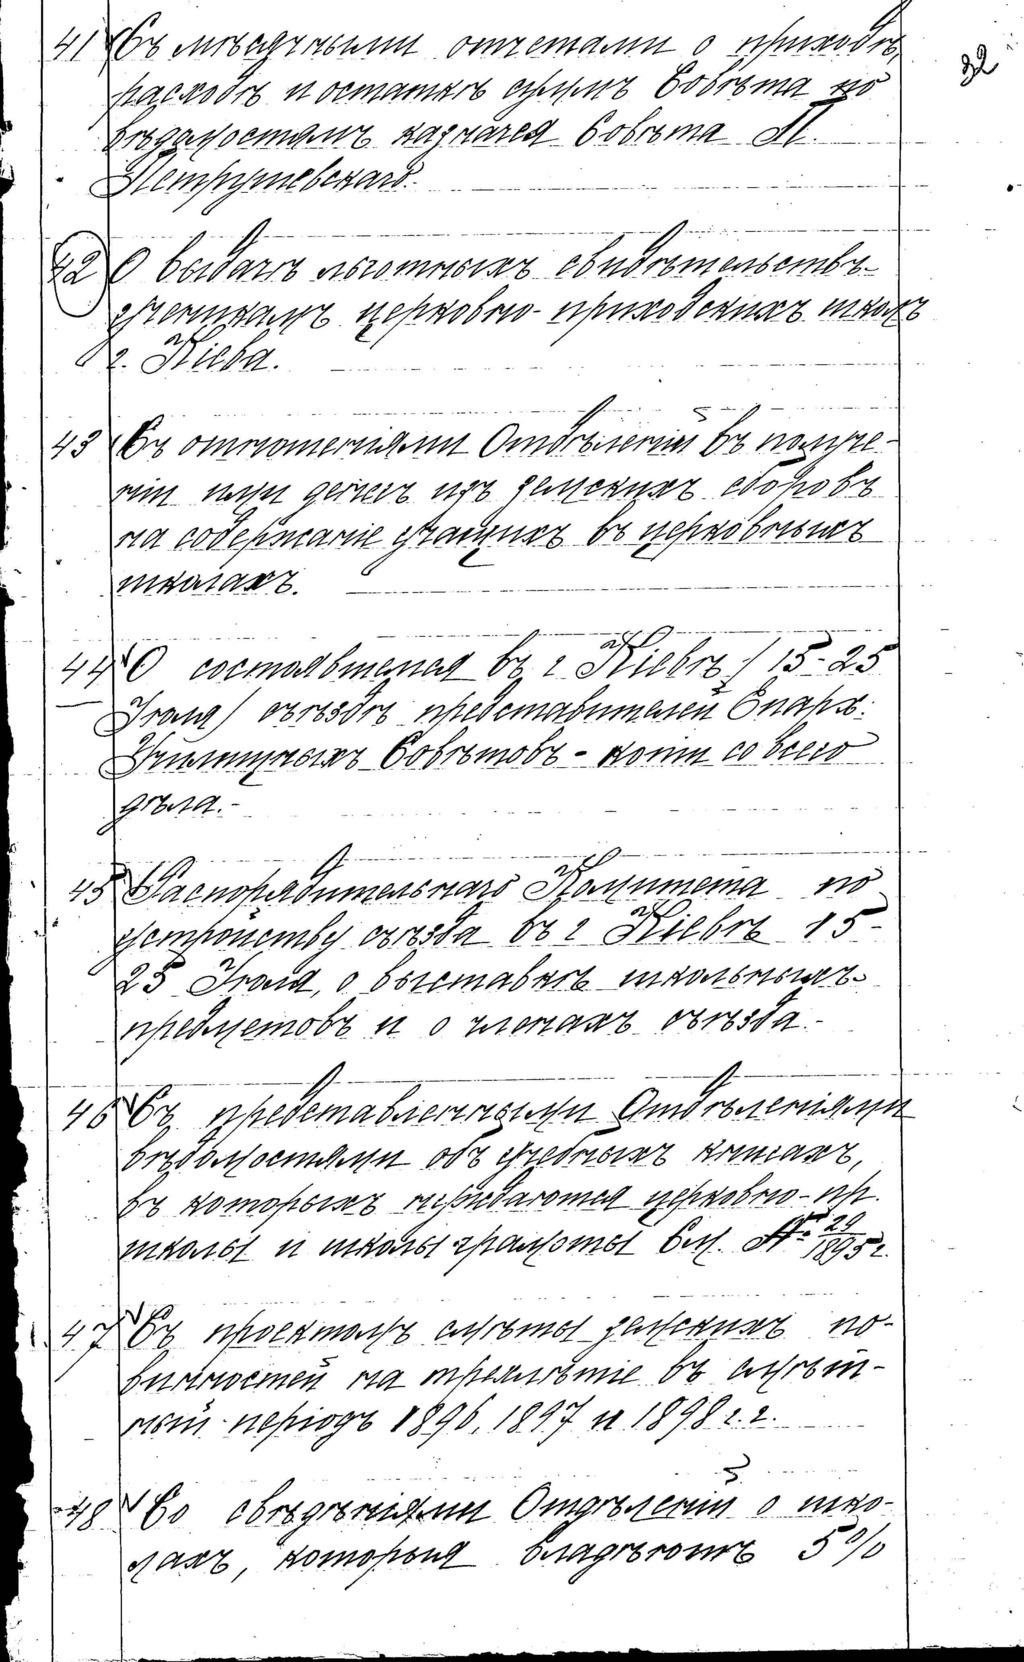 32
41 Съ мѣсячными отчетами о приходѣ,
расходѣ и остаткѣ суммъ Совѣта по
вѣдомостямъ казначея Совѣта П.
Петрушевскаго.
42 О выдачѣ льготныхъ свидѣтельствъ
ученикамъ церковно-приходскихъ школъ
г. Кіева.
43 Съ отношеніями Отдѣленій въ получе-
ніи ими денегъ изъ земскихъ сборовъ
на содержаніе учащихъ въ церковныхъ
школахъ.
44 О состоявшемся въ г. Кіевѣ /15-25
Іюля/ съѣздѣ представителей Епарх:
Училищныхъ Совѣтовъ - копіи со всего
дѣла.-
45 Распорядительнаго Комитета по
устройству съѣзда въ г Кіевѣ 15-
25 Іюля, о выставкѣ школьныхъ
предметовъ и о членахъ съѣзда.-
46 Съ представленными Отдѣленіями
вѣдомостями объ учебныхъ книгахъ,
въ которыхъ нуждаются церковно-пр.
школы и школы грамоты См. № 29/1895 г.
47 Съ проектомъ смѣты земскихъ по-
винностей на трехлѣтіе въ смѣт-
ный періодъ 1896, 1897 и 1898 г.г.
48 Со свѣдѣніями Отдѣленій о шко-
лахъ, которыя владѣютъ 5%